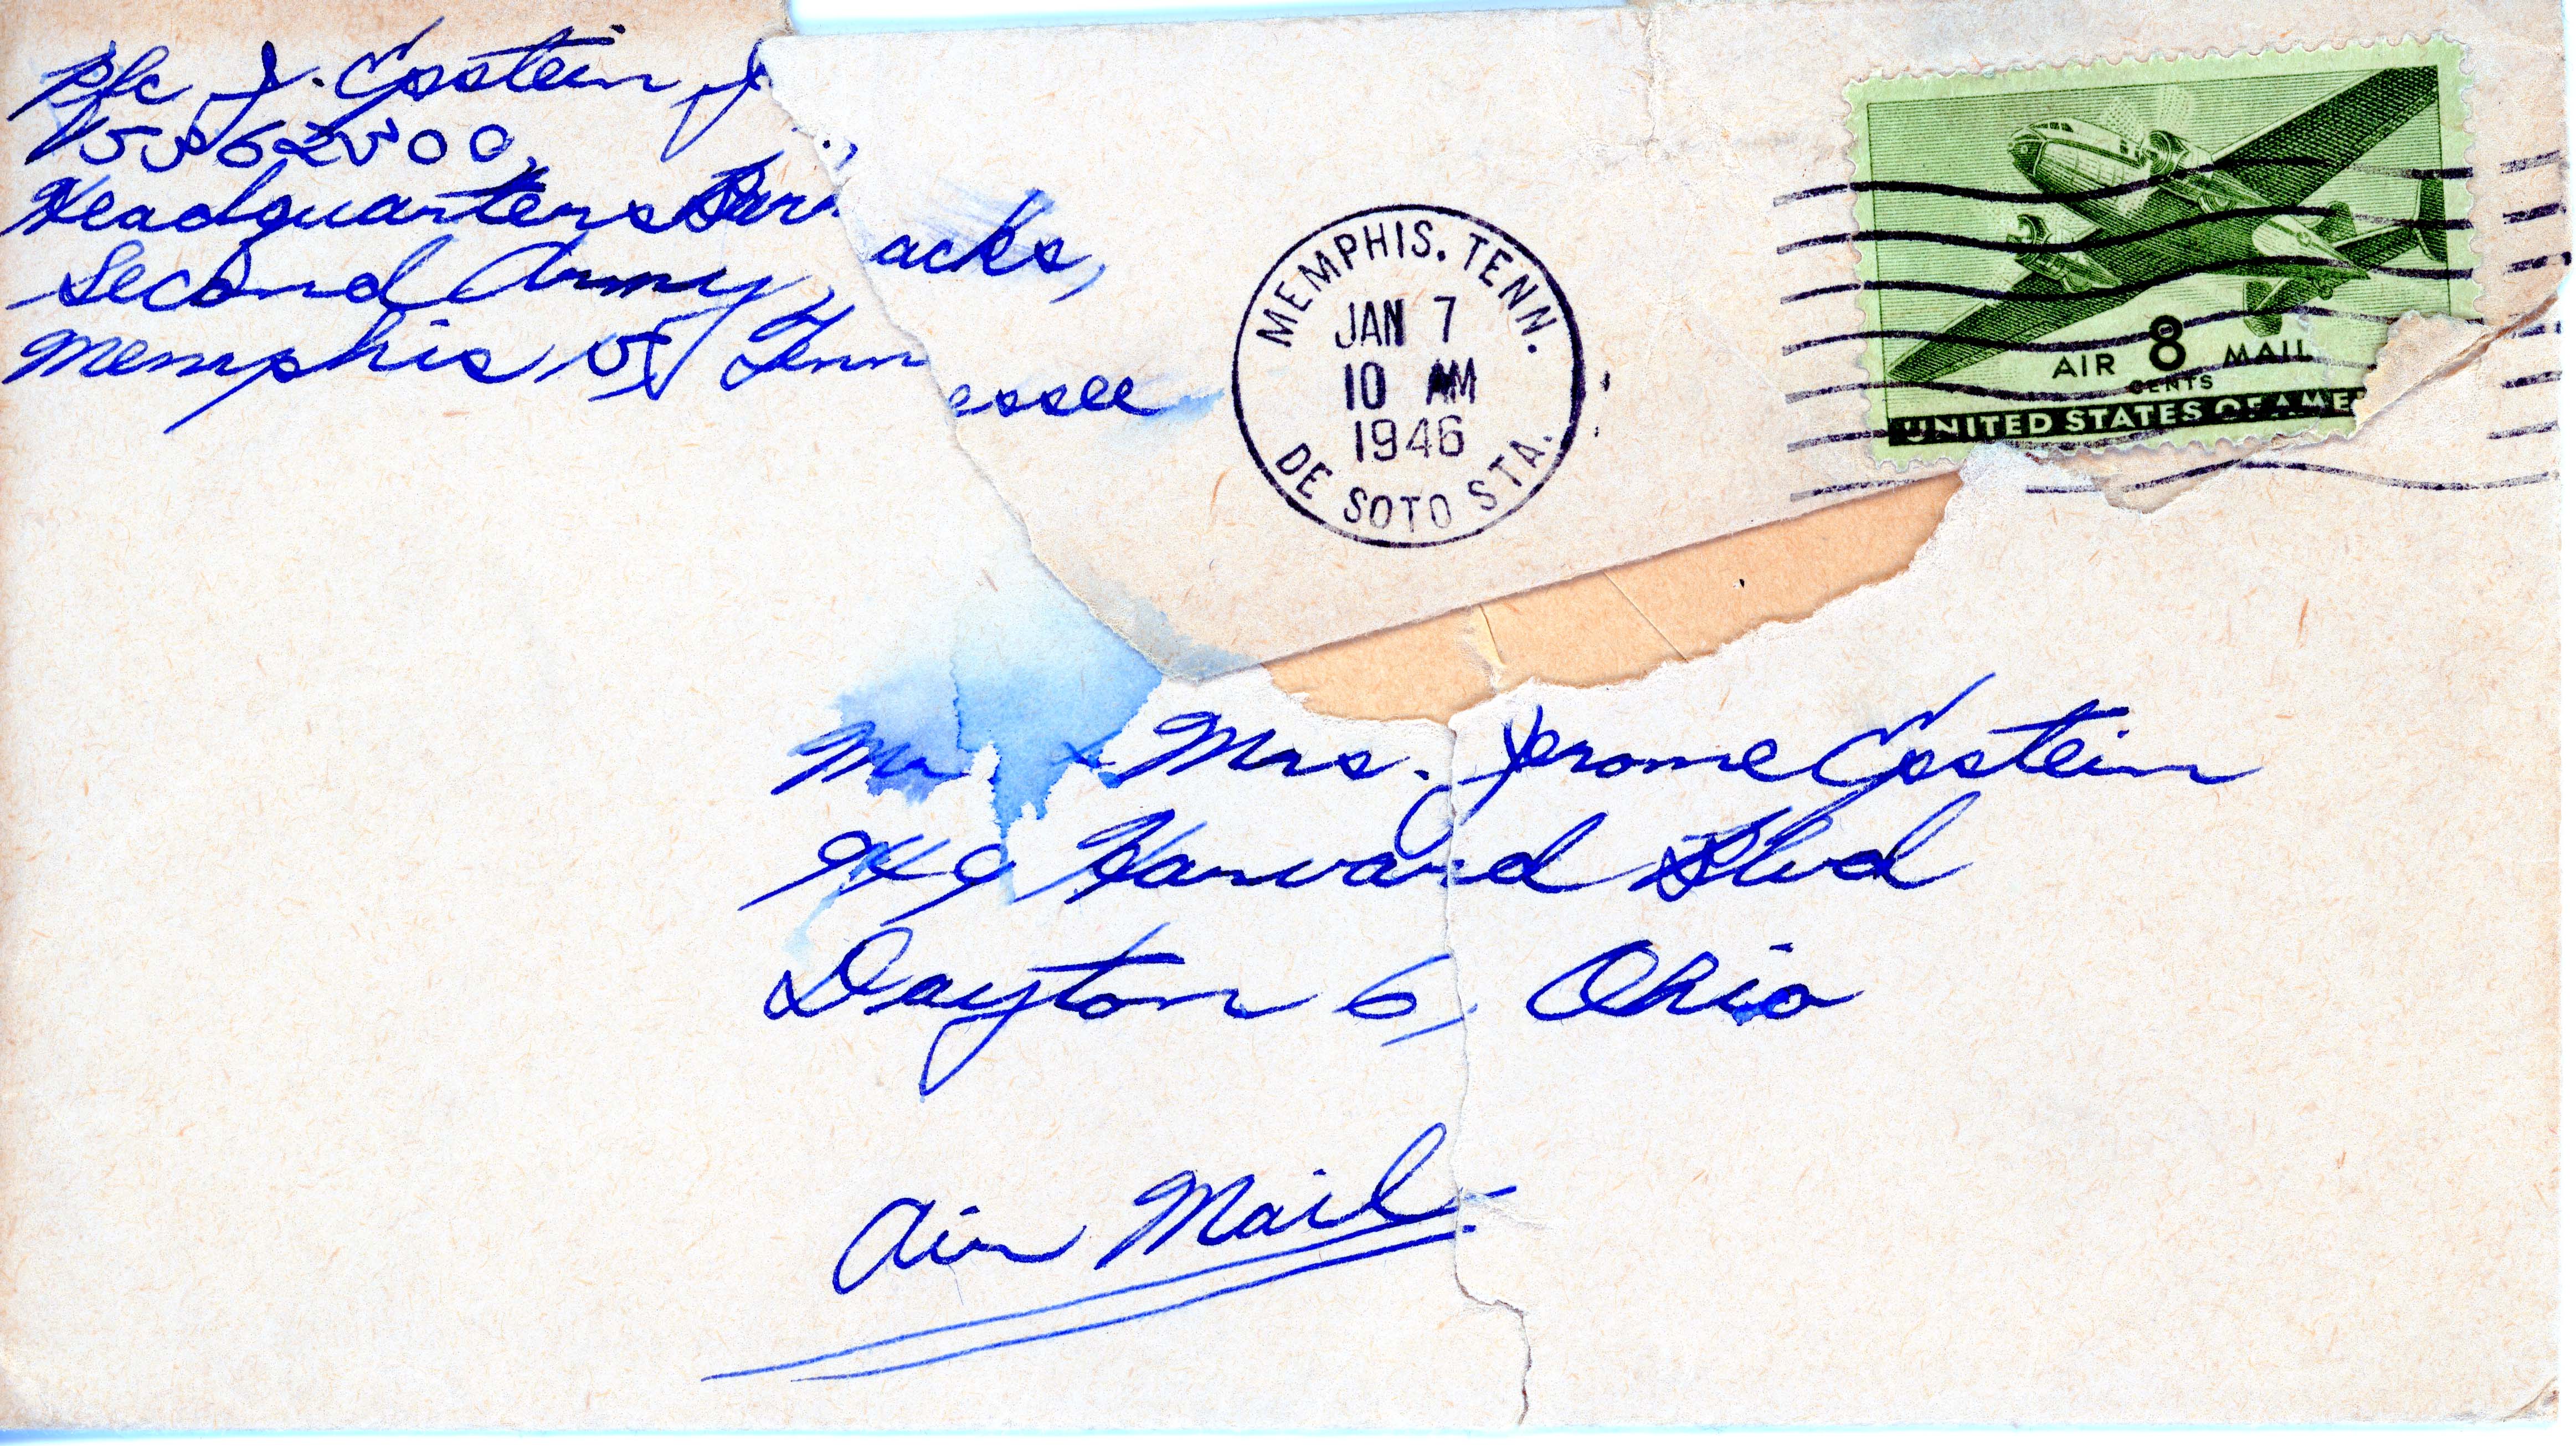 Pfc J. Epstein J
Headquarters Barracks,
Second Army,
Memphis 15, Tennessee
MEMPHIS, TENN.
JAN 7
10 AM
1946
DE SOTO STA.
AIR 8 MAIL
CENTS
UNITED STATES OF AME
Mr & Mrs. Jerome Epstein
949 Harvard Blvd
Dayton 6, Ohio
Air Mail.